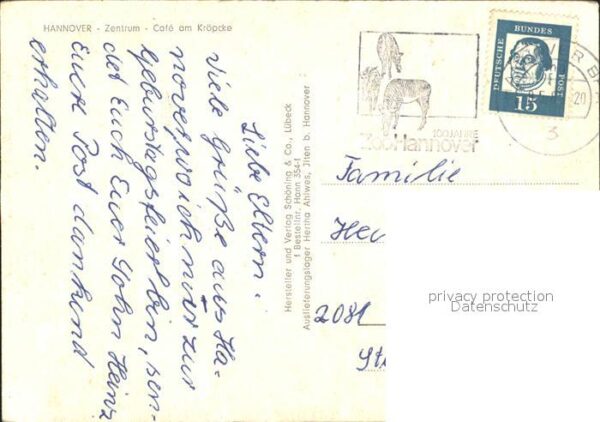 HANNOVER - Zentrum - Café am Kröpcke
Liebe Eltern.
Viele Grüße aus Ha-
nover, wo ich nur zur
Geburtstagsfeier bin, sen-
det Euch Euer Sohn Heinz
Eure Post dankend
erhalten.
Hersteller und Verlag Schöning & Co., Lübeck
1 Bestellnr. Hann 354-1
Auslieferungslager Hertha Ahlwes, Jlten b. Hannover
100 JAHRE
Zoo Hannover
DEUTSCHE BUNDESPOST
15
3
Familie
2081
privacy protection
Datenschutz